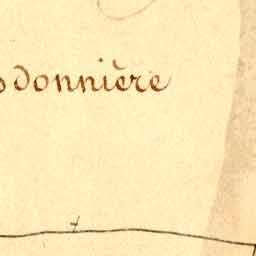 donnière